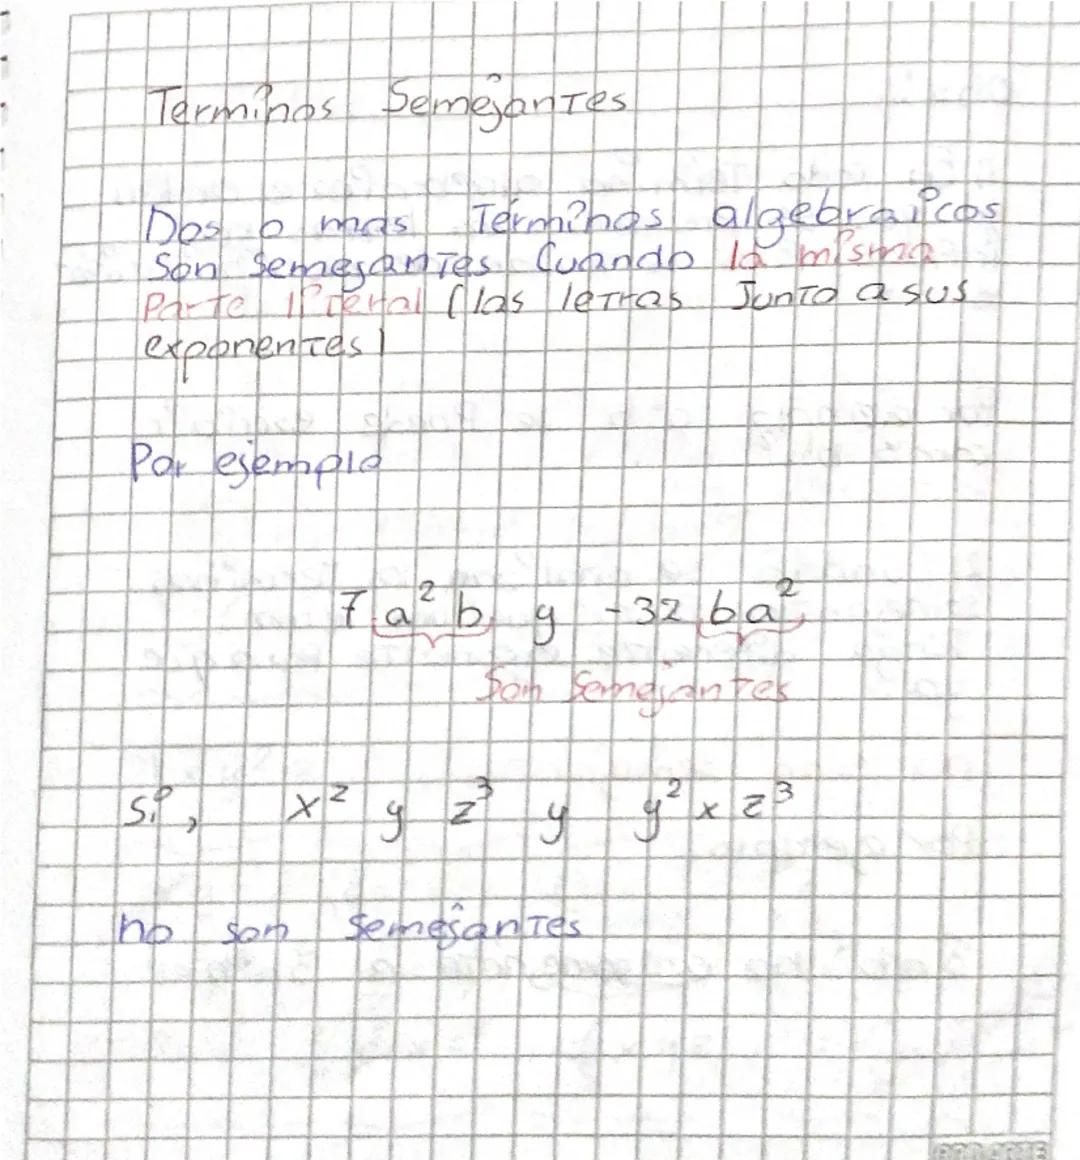 Terminos Semejantes
Dos o mas Términos algebraicos
Son Semejantes Cuando la misma
Parte literal (las letras Junto a sus
exponentes)
Por ejemplo
7 a² b y -32 ba²
Son Semejantes
Si, x² y z³ y y² x z³
no son Semejantes